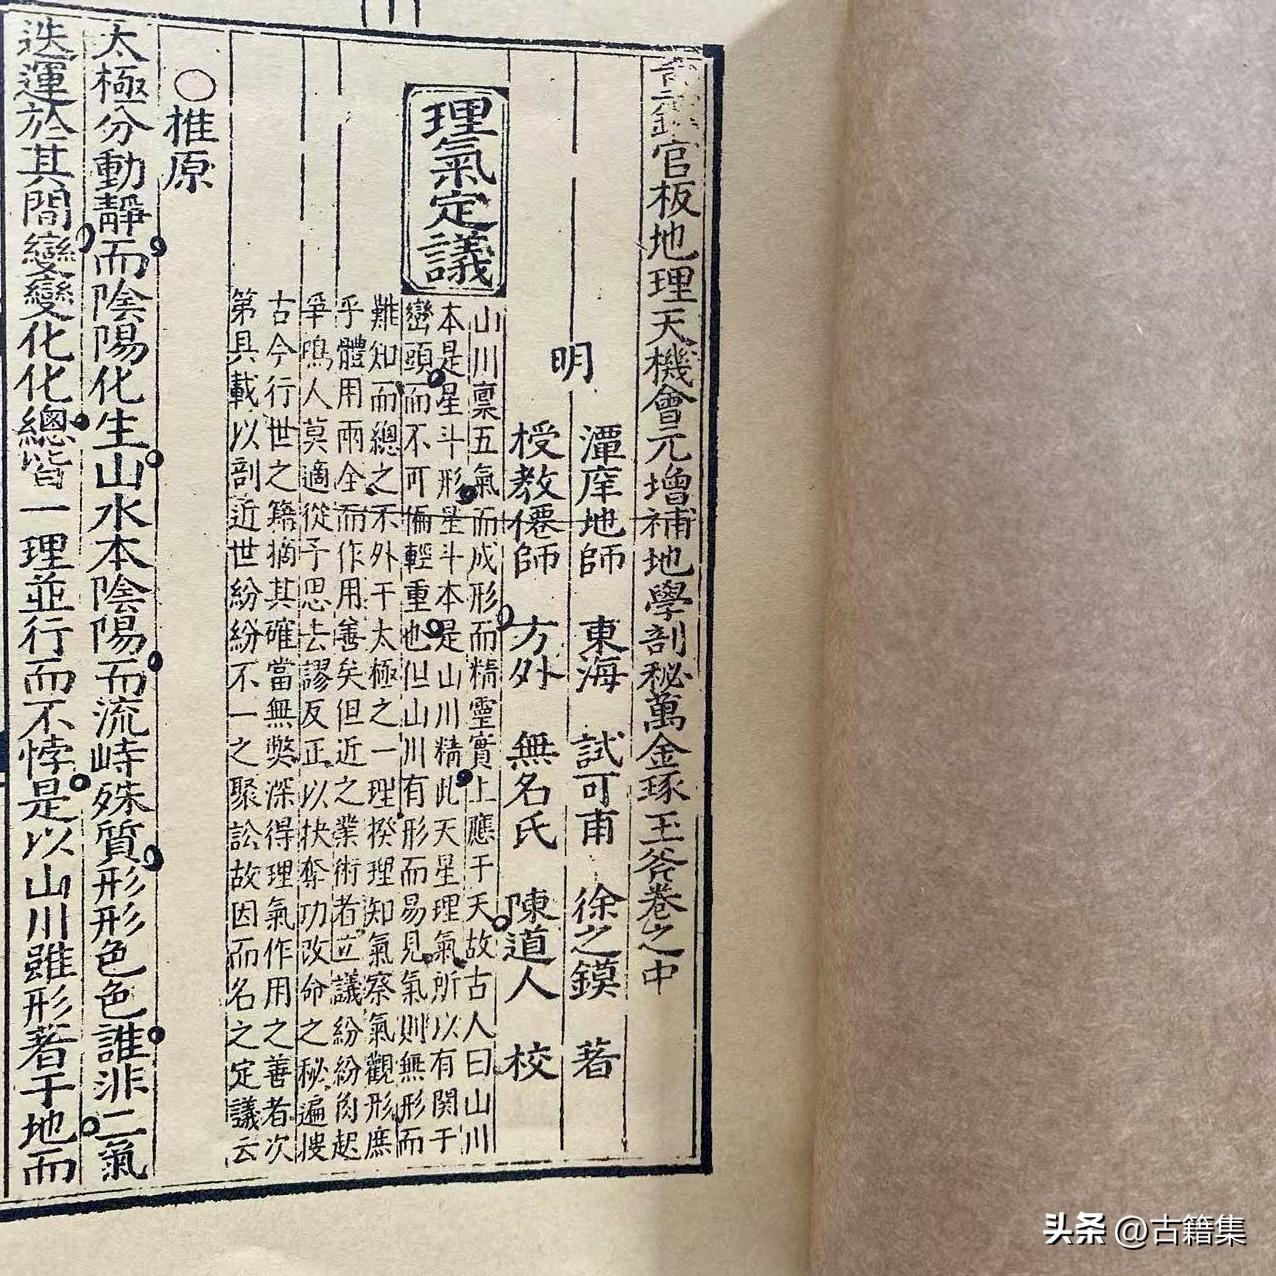 官板地理天機會元增補地學剖秘萬金琢玉斧卷之中
明
潭庠地師 東海 試可甫 徐之鏌 著
授教僊師 方外 無名氏 陳道人 校
理氣定議
山川禀五氣而成形而精靈實上應于天故古人曰山川
本是星斗形星斗本是山川精此天星理氣所以有関于
巒頭而不可偏輕重也但山川有形而易見氣則無形而
難知而總之不外干太極之一理揆理知氣察氣觀形庶
乎體用兩全而作用善矣但近之業術者立議紛紛角起
爭鳴人莫適從予思去謬反正以抉奪功改命之秘遍搜
古今行世之籍摘其確當無獘深得理氣作用之善者次
第具載以剖近世紛紛不一之聚訟故因而名之定議云
○推原
太極分動靜而陰陽化生山水本陰陽而流峙殊質形形色色誰非二氣
迭運於其間變變化化總皆一理並行而不悖是以山川雖形著于地而
头条 @古籍集